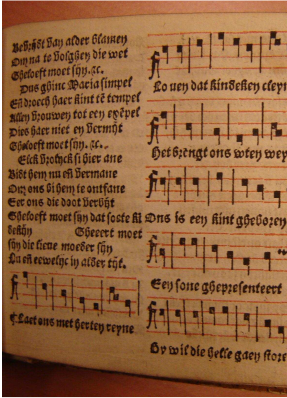 Bevrijst van alder blamen
Om na te volghen die wet
Gheloeft moet sijn. &c.
Dus ghinc Maria simpel
Eñ droech haer kint te tempel
Allen vrouwen tot een exẽpel
Dies haer niet en vermijt
Gheloeft moet sijn. &c.
Elck
si hier ane
Bidt hem
eñ vermane
Om ons bi hem te ontfane
Eer ons die doot verbijt
Gheloeft moet sijn dat soete ki
dekijn Gheeert moet
sijn die lieve moeder sijn
Nu eñ eewelijc in alder tijt.
¶ Laet ons met herten reyne
Lo ven dat kindeken cleyn
Het brengt ons wten wey
Ons is een kint gheboren
Een sone ghepresenteert
Hy wil die helle gaen store